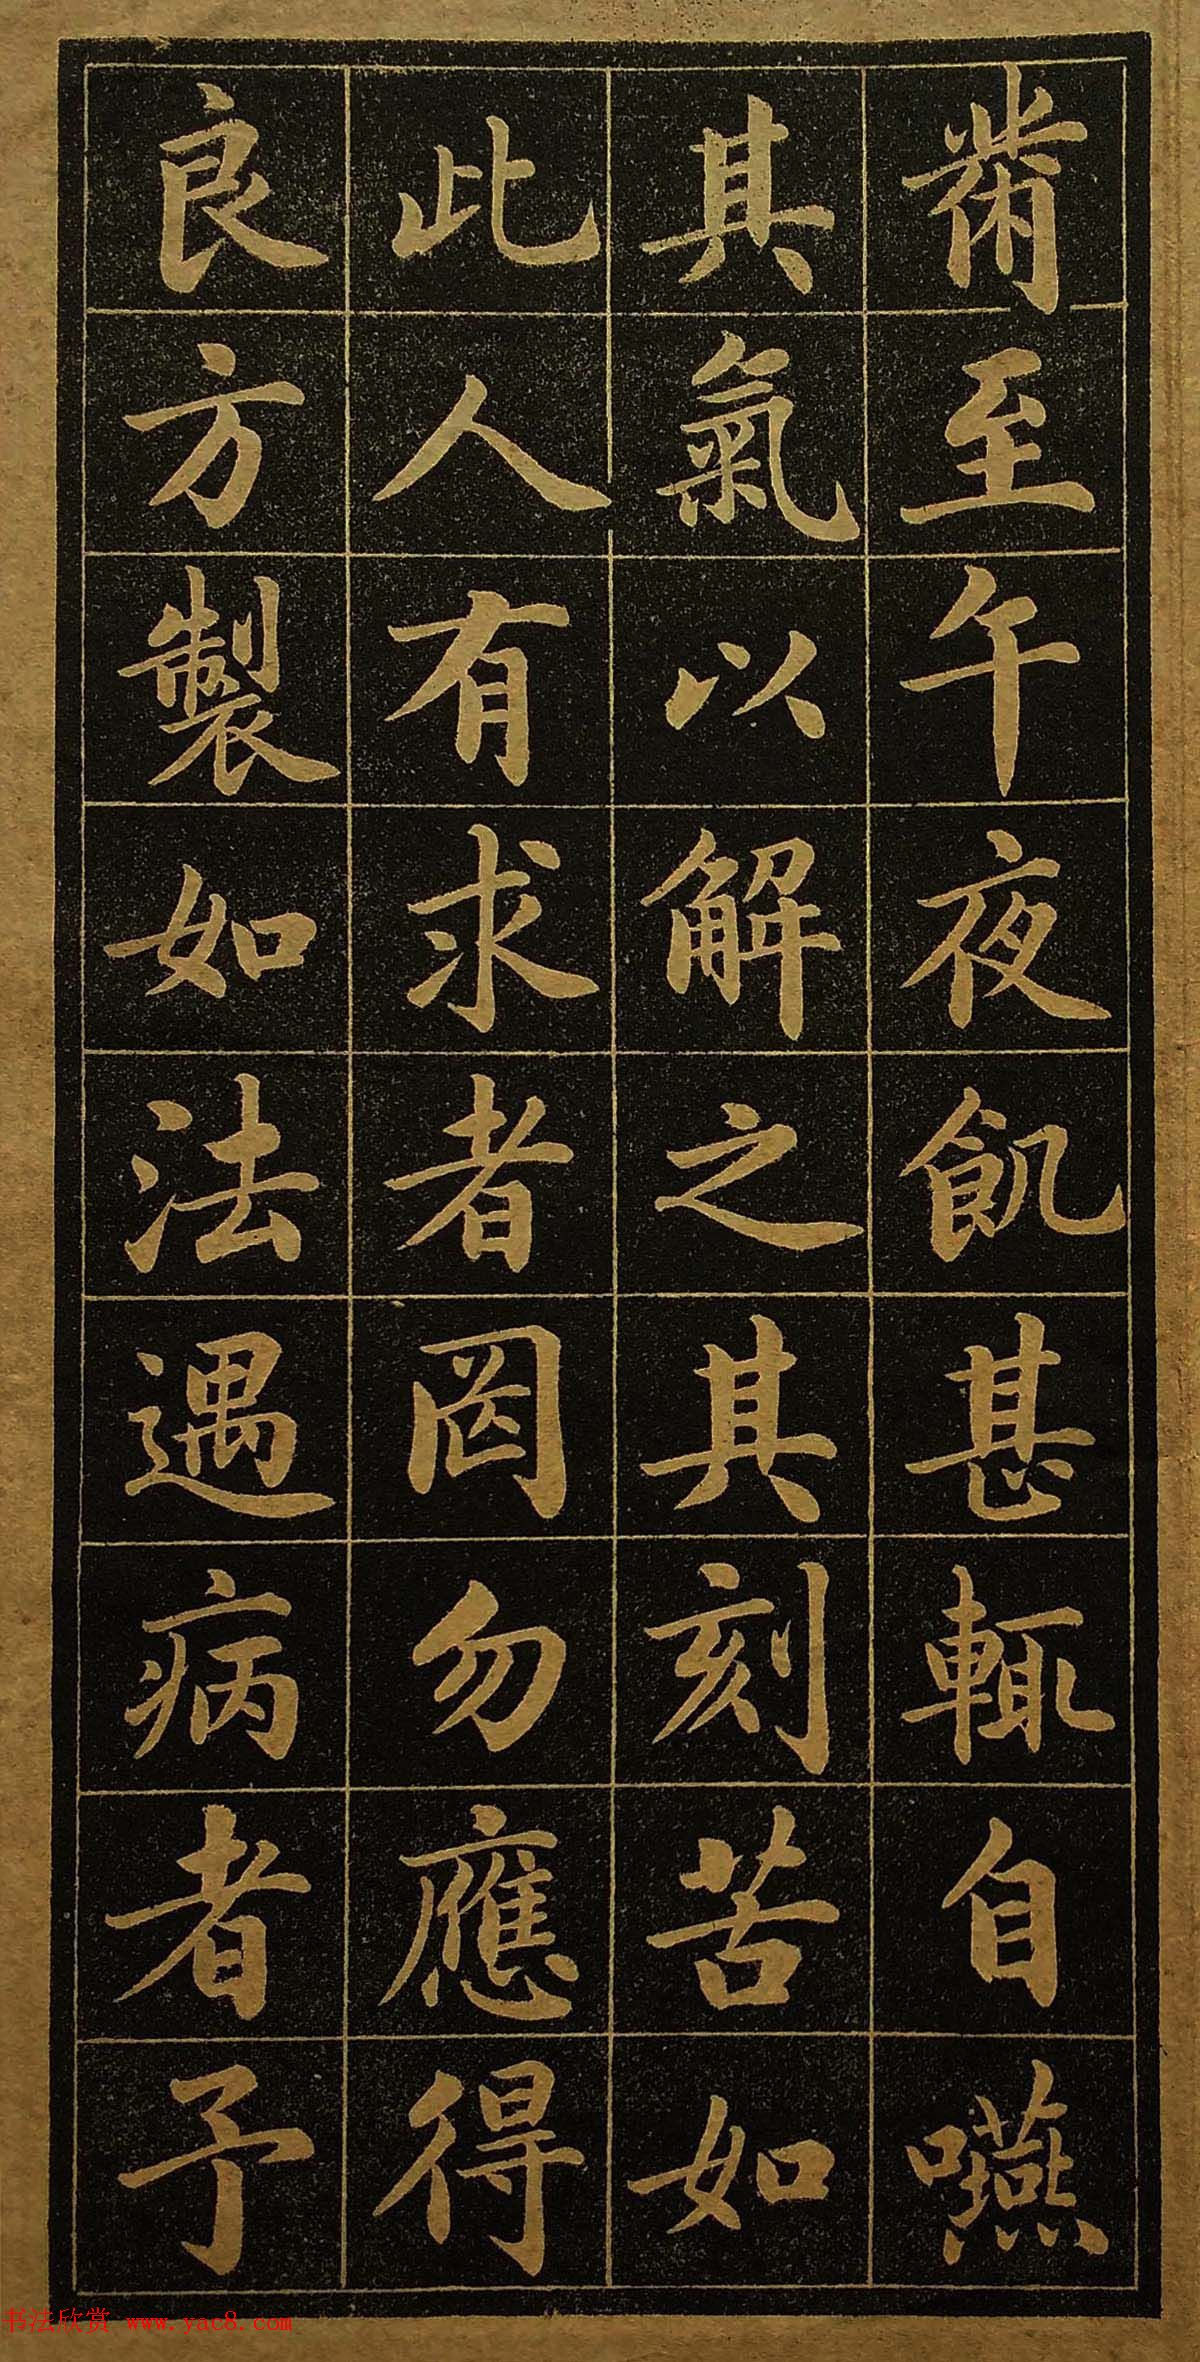 至午夜飢甚輒自嚥
其氣以解之其刻苦如
此人有求者罔勿應得
良方製如法遇病者予
书法欣赏 www.yac8.com